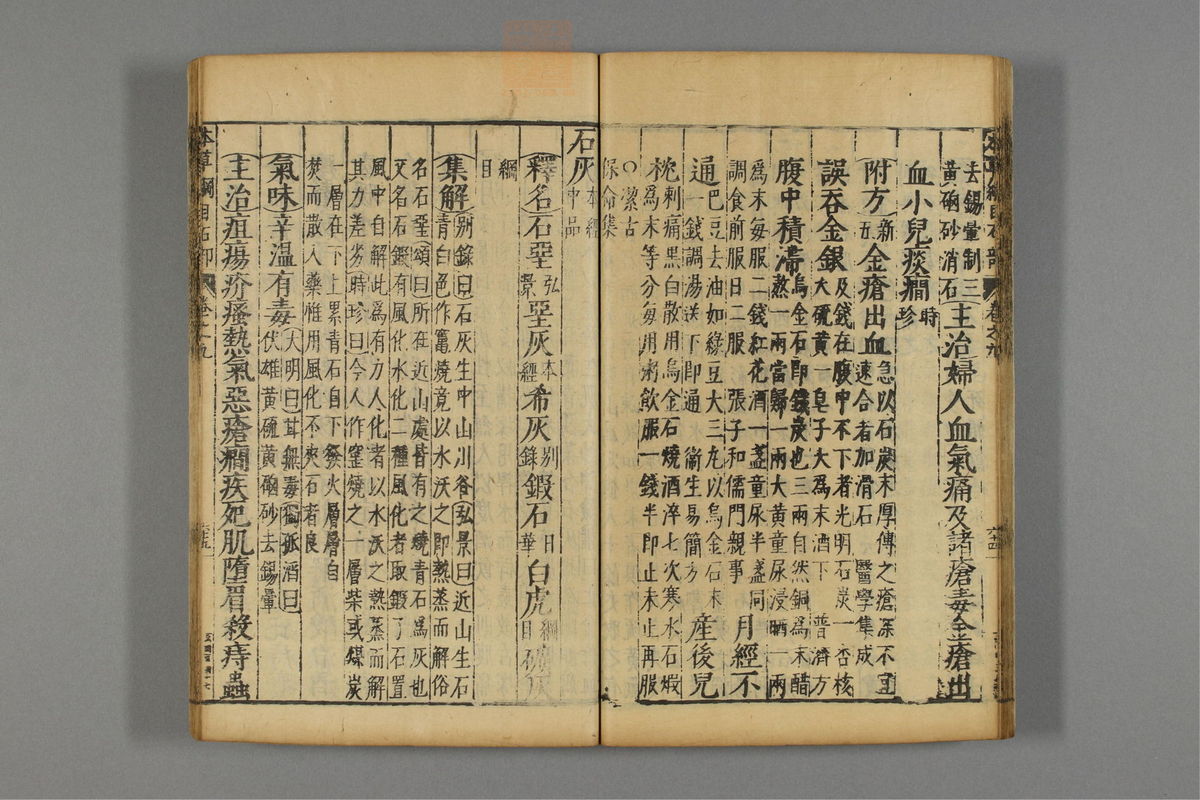 去錫暈制三
黃硇砂消石
主治婦人血氣痛及諸瘡毒金瘡出
血小兒痰癇時珍
附方新五金瘡出血急以石炭末厚傅之瘡深不宜
速合者加滑石 醫學集成
誤吞金銀及錢在腹中不下者光明石炭一杏核
大硫黃一皂子大為末酒下 普濟方
腹中積滯烏金石即鐵炭也三兩自然銅為末醋
熬一兩當歸一兩大黃童尿浸晒一兩
為末每服二錢紅花酒一盞童尿半盞同
調食前服日二服 張子和儒門親事
月經不
通巴豆去油如綠豆大三丸以烏金石末
一錢調湯送下即通 衛生易簡方
產後兒
枕刺痛黑白散用烏金石燒酒淬七次寒水石煅
為末等分每用粥飲服一錢半即止未止再服
○潔古
保命集
石灰本經中品
釋名石堊弘景堊灰本經希灰別錄鍛石日華白虎綱目礦灰
綱
目
集解別錄曰石灰生中山川谷弘景曰近山生石
青白色作竈燒竟以水沃之即熱蒸而解俗
名石堊頌曰所在近山處皆有之燒青石為灰也
又名石鍛有風化水化二種風化者取鍛了石置
風中自解此為有力水化者以水沃之熱蒸而解
其力差劣時珍曰今人作窰燒之一層柴或煤炭
一層在下上累青石自下發火層層自
焚而散入藥惟用風化不夾石者良
氣味辛溫有毒大明曰甘無毒獨孤滔曰
伏雄黃硫黃硇砂去錫暈
主治疽瘍疥瘙熱氣惡瘡癩疾死肌墮眉殺痔蟲
本草綱目石部 卷之九
六十四
本草綱目石部 卷之九
六十五